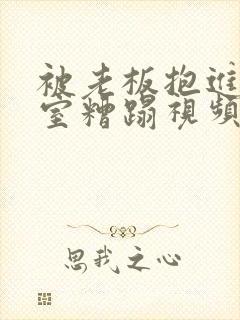 被老板抱进
室糟蹋視頻
思我之心